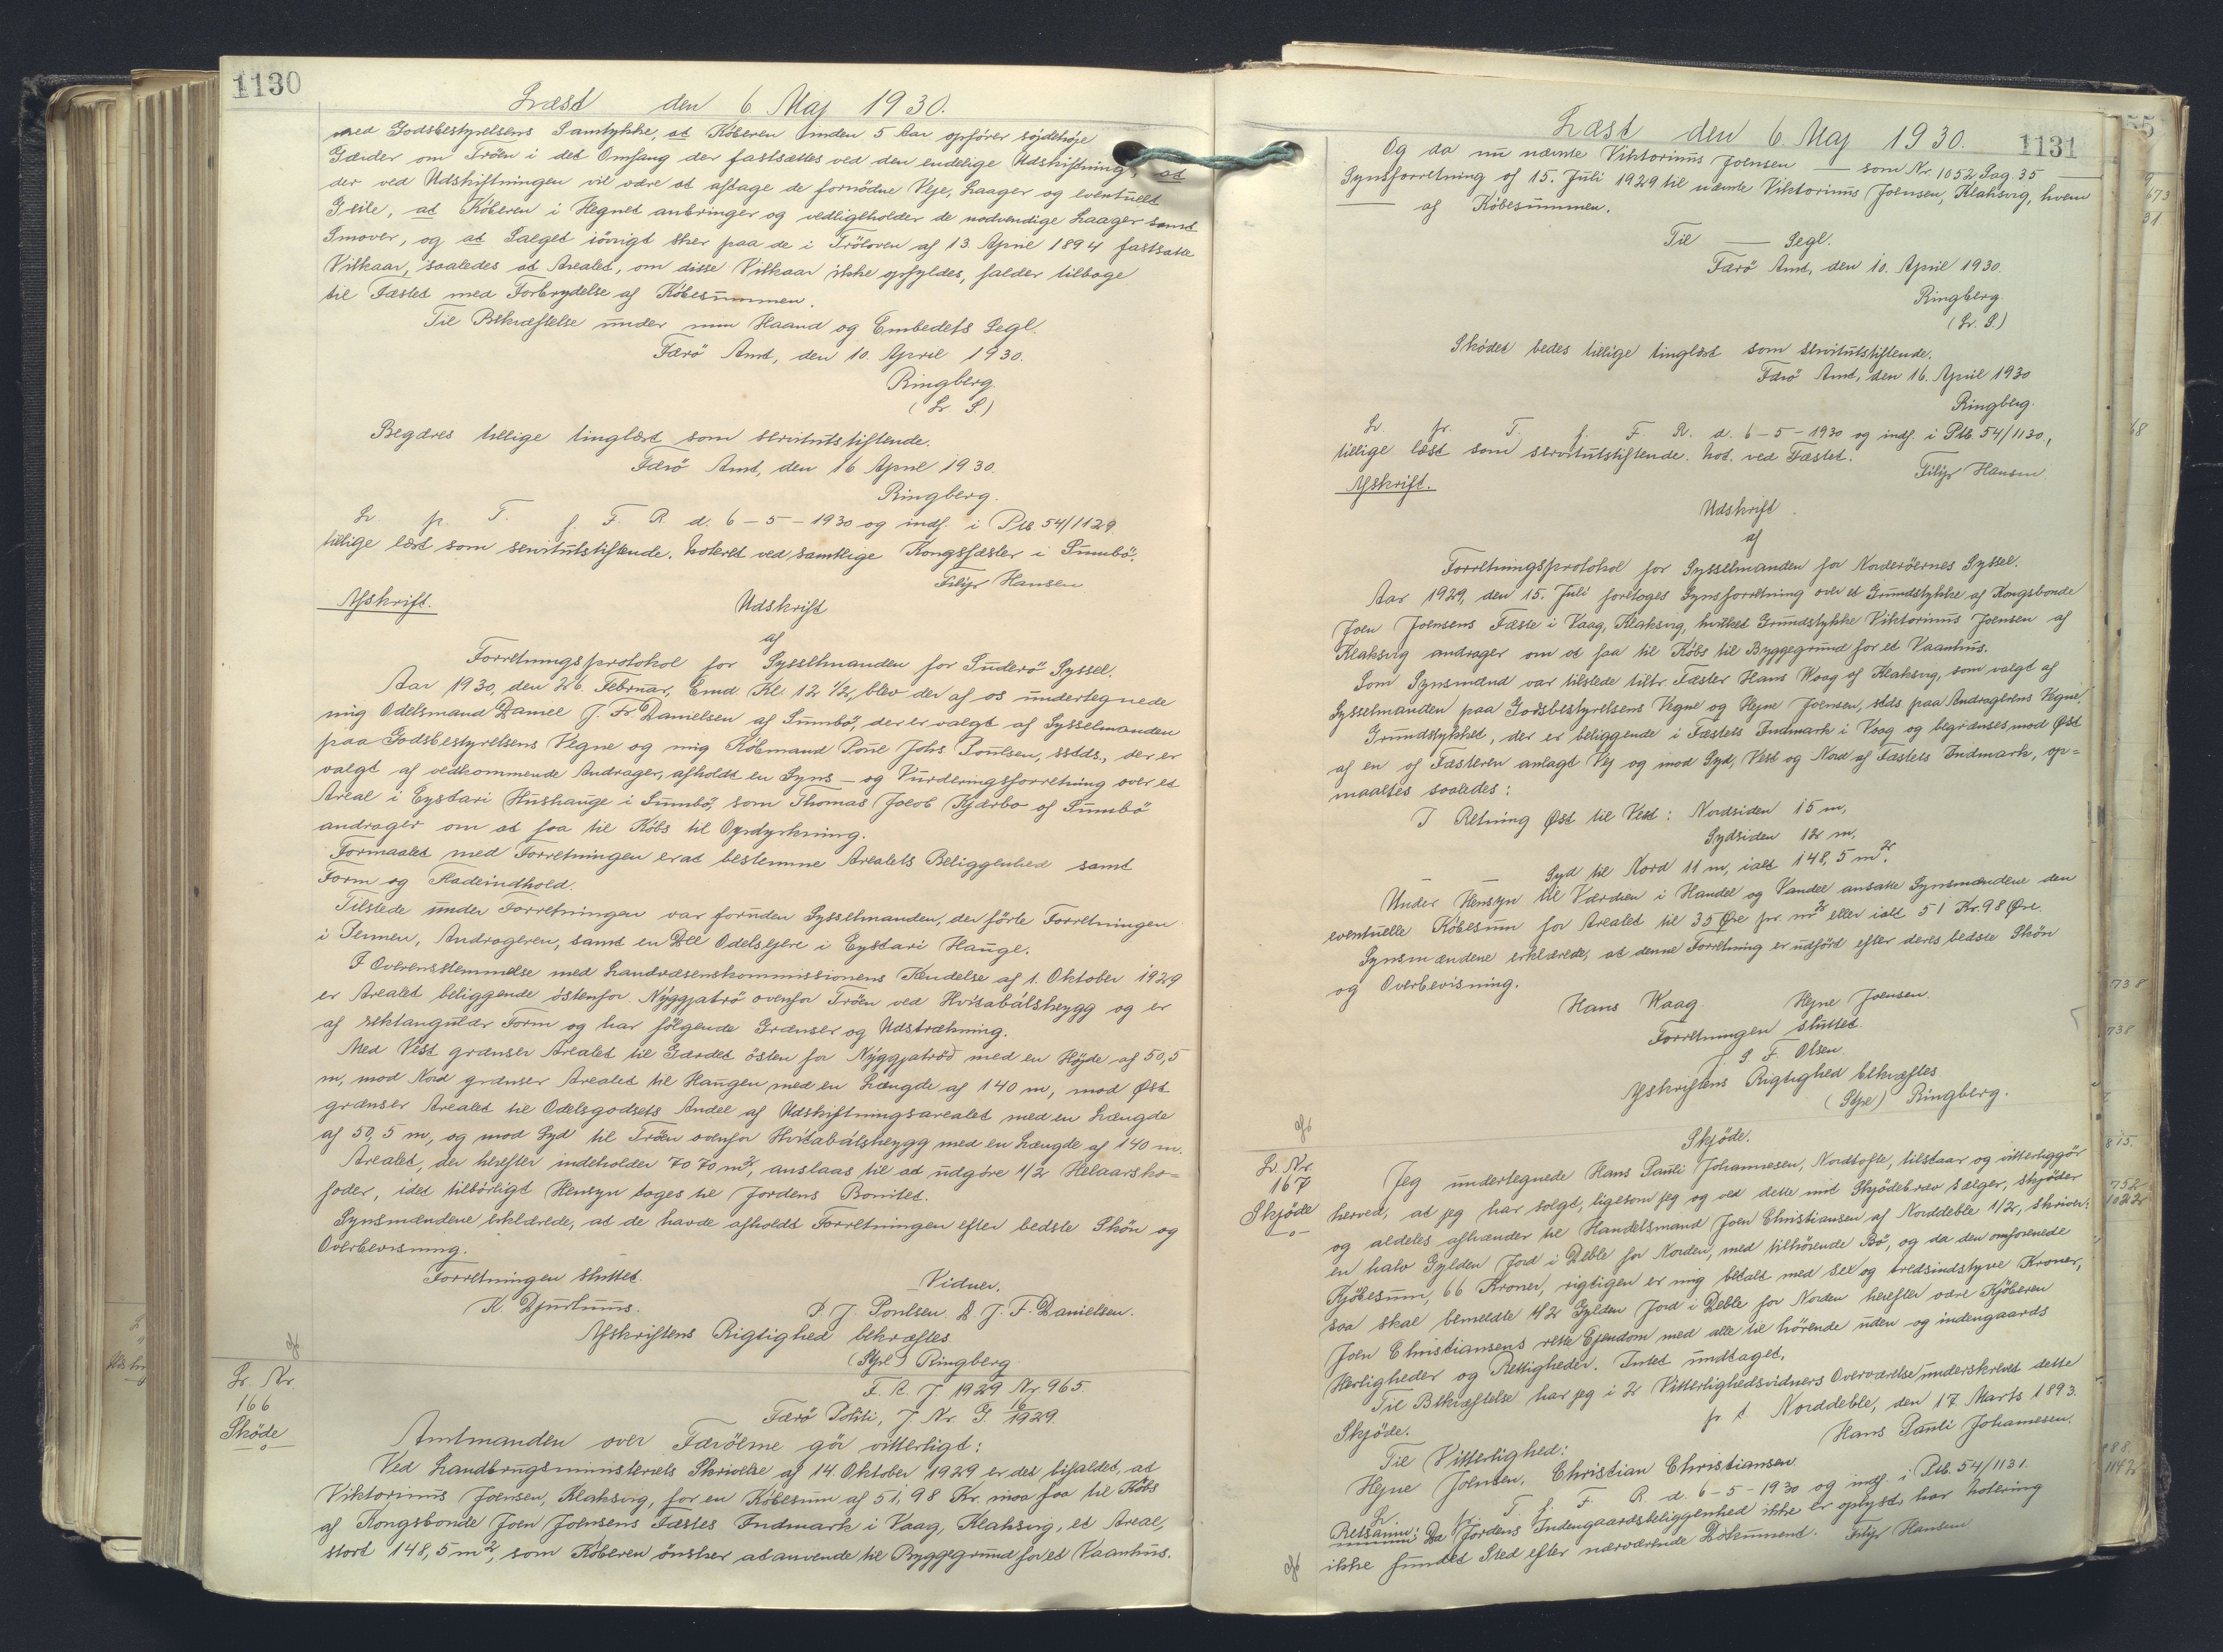 1130
Læst den 6 Maj 1930.
med Godsbestyrelsens Samtykke, at Köberen inden 5 Aar opförer söjdehöje
Gærder om Tröen i det Omfang der fastsættes ved den endelige Udskiftning, at
der ved Udskiftningen vil være at aftage de fornödne Veje, Laager og eventuelt
Geile, at Köberen i Hegnet anbringer og vedligeholder de nödvendige Laager samt
Smover, og at Salget iövrigt sker paa de i Tröloven af 13. April 1894 fastsatte
Vilkaar, saaledes at Arealet, om disse Vilkaar ikke opfyldes, falder tilbage
til Fæstet med Forbrydelse af Köbesummen.
Til Bekræftelse under min Haand og Embedets Segl.
Færö Amt, den 10. April 1930.
Ringberg
(L. S)
Begæres tillige tinglæst som servitutstiftende.
Færö Amt, den 16 April 1930.
Ringberg.
L. p. T. f. F. R. d. 6-5-1930 og indf. i Ptb 54/1129.
tillige læst som servitutstiftende. Noteret ved samtlige Kongsfæster i Sumbö.
Filip Hansen
Afskrift.
Udskrift
af
Forretningsprotokol for Sysselmanden for Suderö Syssel.
Aar 1930, den 26. Februar, Emd. Kl. 12 1/2, blev der af os undertegnede
mig Odelsmand Daniel J. Fr. Danielsen af Sumbö, der er valgt af Sysselmanden
paa Godsbestyrelsens Vegne og mig Köbmand Poul Johs. Poulsen, sstds., der er
valgt af vedkommende Andrager, afholdt en Syns- og Vurderingsforretning over et
Areal i Eystari Hushauge i Sumbö, som Thomas Jacob Kjærbo af Sumbö
andrager om at faa til Köbs til Opdyrkning.
Formaalet med Forretningen er at bestemme Arealets Beliggenhed samt
Form og Fladeindhold.
Tilstede under Forretningen var foruden Sysselmanden, der förte Forretningen
i Pennen, Andrageren, samt en Del Odelsejere i Eystari Hauge.
I Overensstemmelse med Landvæsenskommissionens Kendelse af 1. Oktober 1929
er Arealet beliggende östenfor Nýggjatrö ovenfor Tröen ved Hvítabálsheygg og er
af rektangulær Form og har fölgende Grænser og Udstrækning.
Med Vest grænser Arealet til Gærdet östen for Nýggjatröð med en Höjde af 50,5
m, mod Nord grænser Arealet til Haugen med en Længde af 140 m, mod Øst
grænser Arealet til Odelsgodsets Andel af Udskiftningsarealet med en Længde
af 50,5 m, og mod Syd til Tröen ovenfor Hvítabálsheygg med en Længde af 140 m.
Arealet, der herefter indeholder 7070 m2, anslaas til at udgöre 1/2 Helaarsko=
foder, idet tilbörligt Hensyn tages til Jordens Bonitet.
Synsmændene erklærede, at de havde afholdt Forretningen efter bedste Skön og
Overbevisning.
Forretningen sluttet.
Vidner.
K. Djurhuus.
P J. Poulsen D J. F. Danielsen.
Afskriftens Rigtighed bekræftes
(Stpl) Ringberg
Lr. Nr
166
Sköde
F. R. J. 1929 Nr. 965.
Færö Politi, J. Nr. G. 16/1929.
Amtmanden over Færöerne gör vitterligt:
Ved Landbrugsministeriets Skrivelse af 14. Oktober 1929 er det bifaldet, at
Viktorinus Joensen, Klaksvig, for en Köbesum af 51,98 Kr. maa faa til Köbs
af Kongsbonde Joen Joensens Fæstes Indmark i Vaag, Klaksvig, et Areal,
stort 148,5 m2, som Köberen önsker at anvende til Byggegrund for et Vaanhus.
1131
Læst den 6 Maj 1930.
Og da nu nævnte Viktorinus Joensen — som Nr. 1052 Pag 35 —
Synsforretning af 15. Juli 1929 til nævnte Viktorinus Joensen, Klaksvig, hvem
— af Köbesummen.
Til — Segl.
Færö Amt, den 10. April 1930.
Ringberg.
(L. S.)
Sködet bedes tillige tinglæst som servitutstiftende.
Færö Amt, den 16. April 1930
Ringberg.
L. p. T. f. F. R. d. 6-5-1930 og indf. i Ptb. 54/1130,
tillige læst som servitutstiftende. Not. ved Fæstet.
Filip Hansen
Afskrift.
Udskrift.
af
Forretningsprotokol for Sysselmanden for Norderöernes Syssel.
Aar 1929, den 15. Juli foretoges Synsforretning over et Grundstykke af Kongsbonde
Joen Joensens Fæste i Vaag, Klaksvig, hvilket Grundstykke Viktorinus Joensen af
Klaksvig andrager om at faa til Köbs til Byggegrund for et Vaanhus.
Som Synsmænd var tilstede tiltr. Fæster Hans Waag af Klaksvig, som valgt af
Sysselmanden paa Godsbestyrelsens Vegne og Hejne Joensen, stds. paa Andragerens Vegne.
Grundstykket, der er beliggende i Fæstets Indmark i Vaag og begrænses mod Øst
af en af Fæsteren anlagt Vej og mod Syd, Vest og Nord af Fæstets Indmark, op=
maaltes saaledes:
I Retning Øst til Vest: Nordsiden 15 m,
Sydsiden 12 m,
Syd til Nord 11 m, ialt 148,5 m2.
Under Hensyn til Værdien i Handel og Vandel ansatte Synsmændene den
eventuelle Köbesum for Arealet til 35 Øre pr. m2 eller ialt 51 Kr. 98 Øre.
Synsmændene erklærede, at denne Forretning er udfört efter deres bedste Skön
og Overbevisning.
Hans Waag. Hejne Joensen.
Forretningen sluttet.
J. S. F. Olsen.
Afskriftens Rigtighed bekræftes
(Stpl) Ringberg.
Lr. Nr.
167
Skjöde
Skjöde.
Jeg undertegnede Hans Pauli Johannesen, Nordtofte, tilstaar og vitterliggör
herved, at jeg har solgt, ligesom jeg og ved dette mit Skjödebrev sælger, skjöder
og aldeles afhænder til Handelsmand Joen Christiansen af Norddeble 1/2, skriver:
en halv Gylden Jord i Deble for Norden, med tilhörende Bö, og da den omforenede
Kjöbesum, 66 Kroner, rigtigen er mig betalt med sex og tredsindstyve Kroner,
saa skal bemeldte 1/2 Gylden Jord i Deble for Norden herefter være Kjöberen
Joen Christiansens rette Ejendom med alle tilhörende uden og indengaards
Herligheder og Rettigheder. Intet undtaget.
Til Bekræftelse har jeg i 2 Vitterlighedsvidners Overværelse underskrevet dette
Skjöde.
p. t. Norddeble, den 17. Marts 1893.
Hans Pauli Johannesen.
Til Vitterlighed:
Hejne Joensen. Christian Christiansen.
L. p. T. f. F. R. d. 6-5-1930 og indf. i Ptb. 54/1131.
Retsanm: Da Jordens Indengaardsbeliggenhed ikke er oplyst, har Notering
ikke fundet Sted efter nærværende Dokument. Filip Hansen